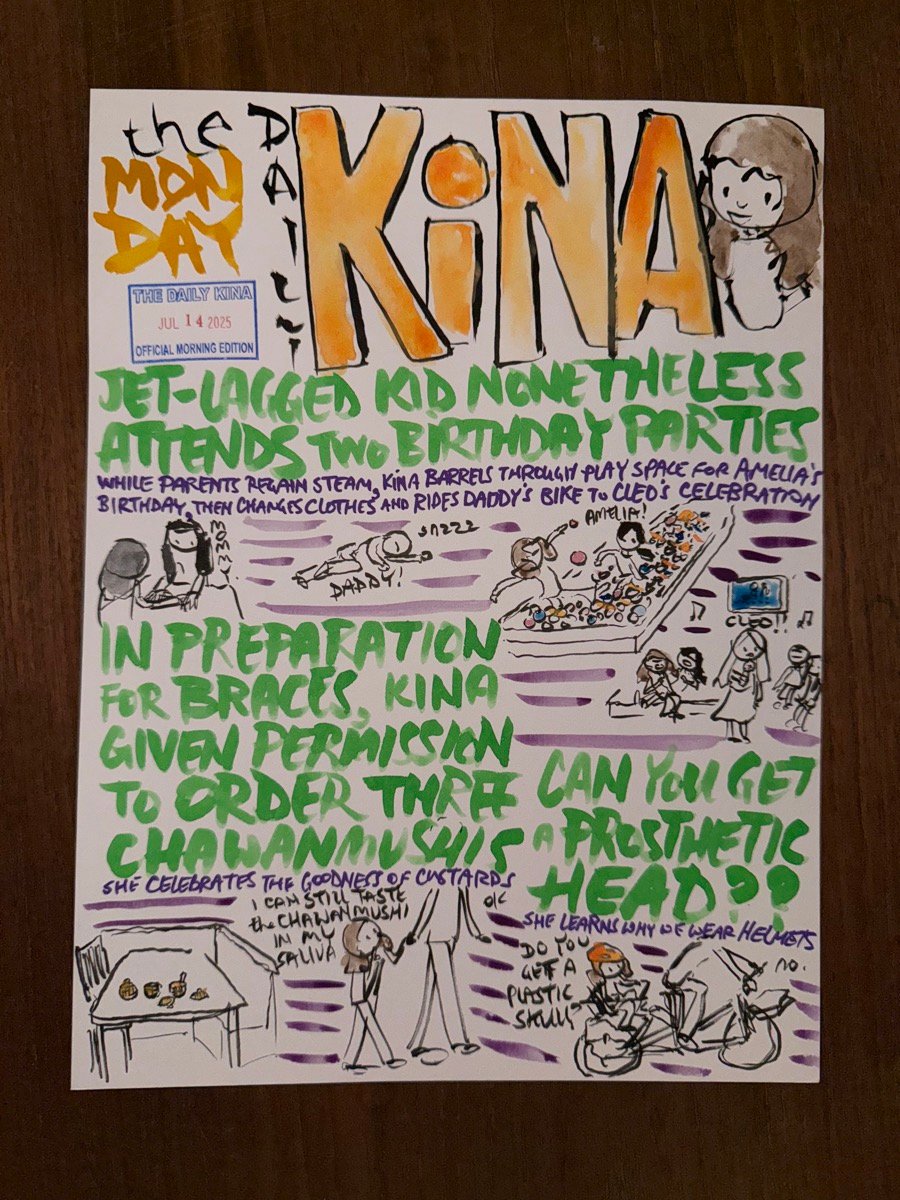 the
MON
DAY
DAILY
KiNA
THE DAILY KINA
JUL 14 2025
OFFICIAL MORNING EDITION
JET-LAGGED KID NONETHELESS
ATTENDS TWO BIRTHDAY PARTIES
WHILE PARENTS REGAIN STEAM, KiNA BARRELS THROUGH PLAY SPACE FOR AMELIA'S
BIRTHDAY, THEN CHANGES CLOTHES AND RIDES DADDY'S BIKE TO CLEO'S CELEBRATION
MOMMY!
snzzz
DADDY!
AMELIA!
CLEO!!
IN PREPARATION
FOR BRACES, KINA
GIVEN PERMISSION
TO ORDER THREE
CHAWANMUSHIS
SHE CELEBRATES THE GOODNESS OF CUSTARDS
I CAN STILL TASTE
the CHAWANMUSHI
IN MY
SALIVA
OK
CAN YOU GET
A PROSTHETIC
HEAD??
SHE LEARNS WHY WE WEAR HELMETS
DO YOU
GET A
PLASTIC
SKULL?
no.